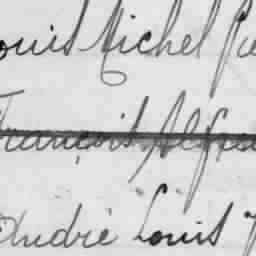 ouis Michel Pie
François Alfred
André Louis